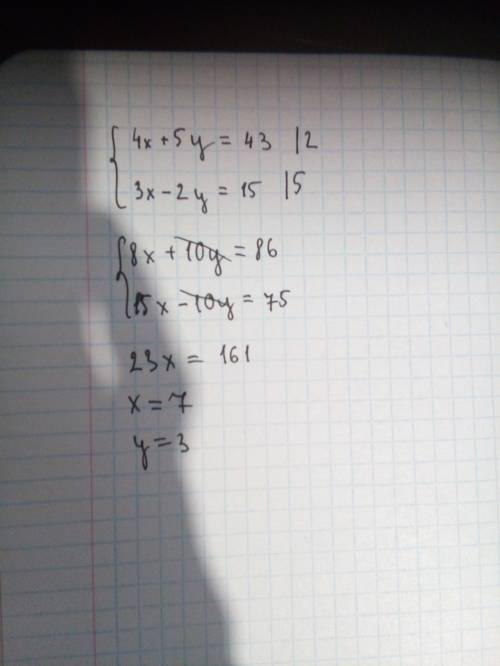 4x + 5y = 43 |2
3x - 2y = 15 |5
8x + 10y = 86
15x - 10y = 75
23x = 161
x = 7
y = 3